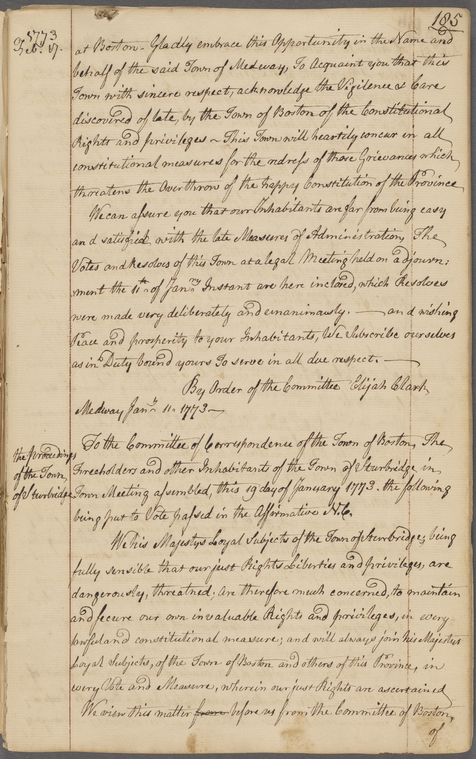 185
1773
Feb. 9.
at Boston - Gladly embrace this Opportunity in the Name and
behalf of the said Town of Medway, To Acquaint you that this
Town with sincere respect, acknowledge the Vigilence & Care
discovered of late, by the Town of Boston of the Constitutional
Rights and privileges ~ This Town will heartily concur in all
constitutional measures for the redress of those Grievances which
threatens the Overthrow of the happy Constitution of the Province
We can assure you that our Inhabitants are far from being easy
and satisfied with the late Measures of Administration, The
Votes and Resolves of this Town at a legal Meeting held on adjourn:
ment the 11th of Jany Instant are here inclosed, which Resolves
were made very deliberately and unanimously. — and wishing
peace and prosperity to your Inhabitants, We Subscribe ourselves
as in Duty bound yours To serve in all due respect. —
By Order of the Committee Elijah Clark
Medway Jany 11 1773 —
the proceedings
of the Town
of Sturbridge
To the Committee of Correspondence of the Town of Boston, The
Freeholders and other Inhabitants of the Town of Sturbridge in
Town Meeting assembled, this 19 day of January 1773. the following
being put to Vote passed in the Affirmative Viz.
We his Majestys Loyal Subjects of the Town of Sturbridge; being
fully sensible that our just Rights Liberties and privileges, are
dangerously, threatned; are therefore much concerned, to maintain
and secure our own invaluable Rights and privileges, in every
lawful and constitutional measure; and will always join his Majestys
Loyal Subjects, of the Town of Boston and others of this Province, in
every Vote and Measure, wherein our just Rights are ascertained
We view this matter from before us from the Committee of Boston,
of